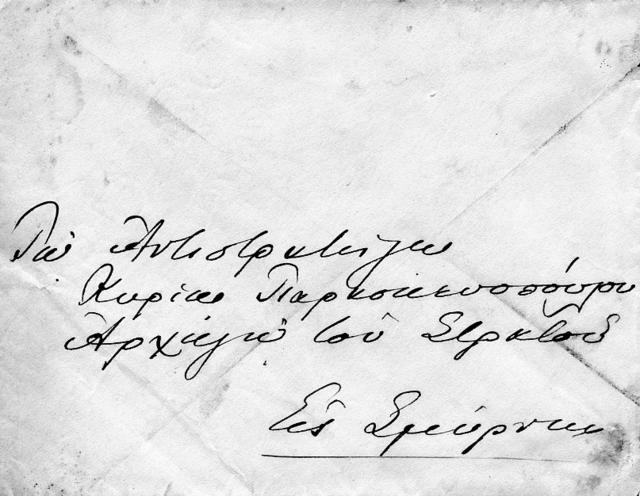 Τῷ Ἀντιστρατήγῳ
Κυρίῳ Παρασκευοπούλῳ
Ἀρχηγῷ τοῦ Στρατοῦ
Εἰς Σμύρνην